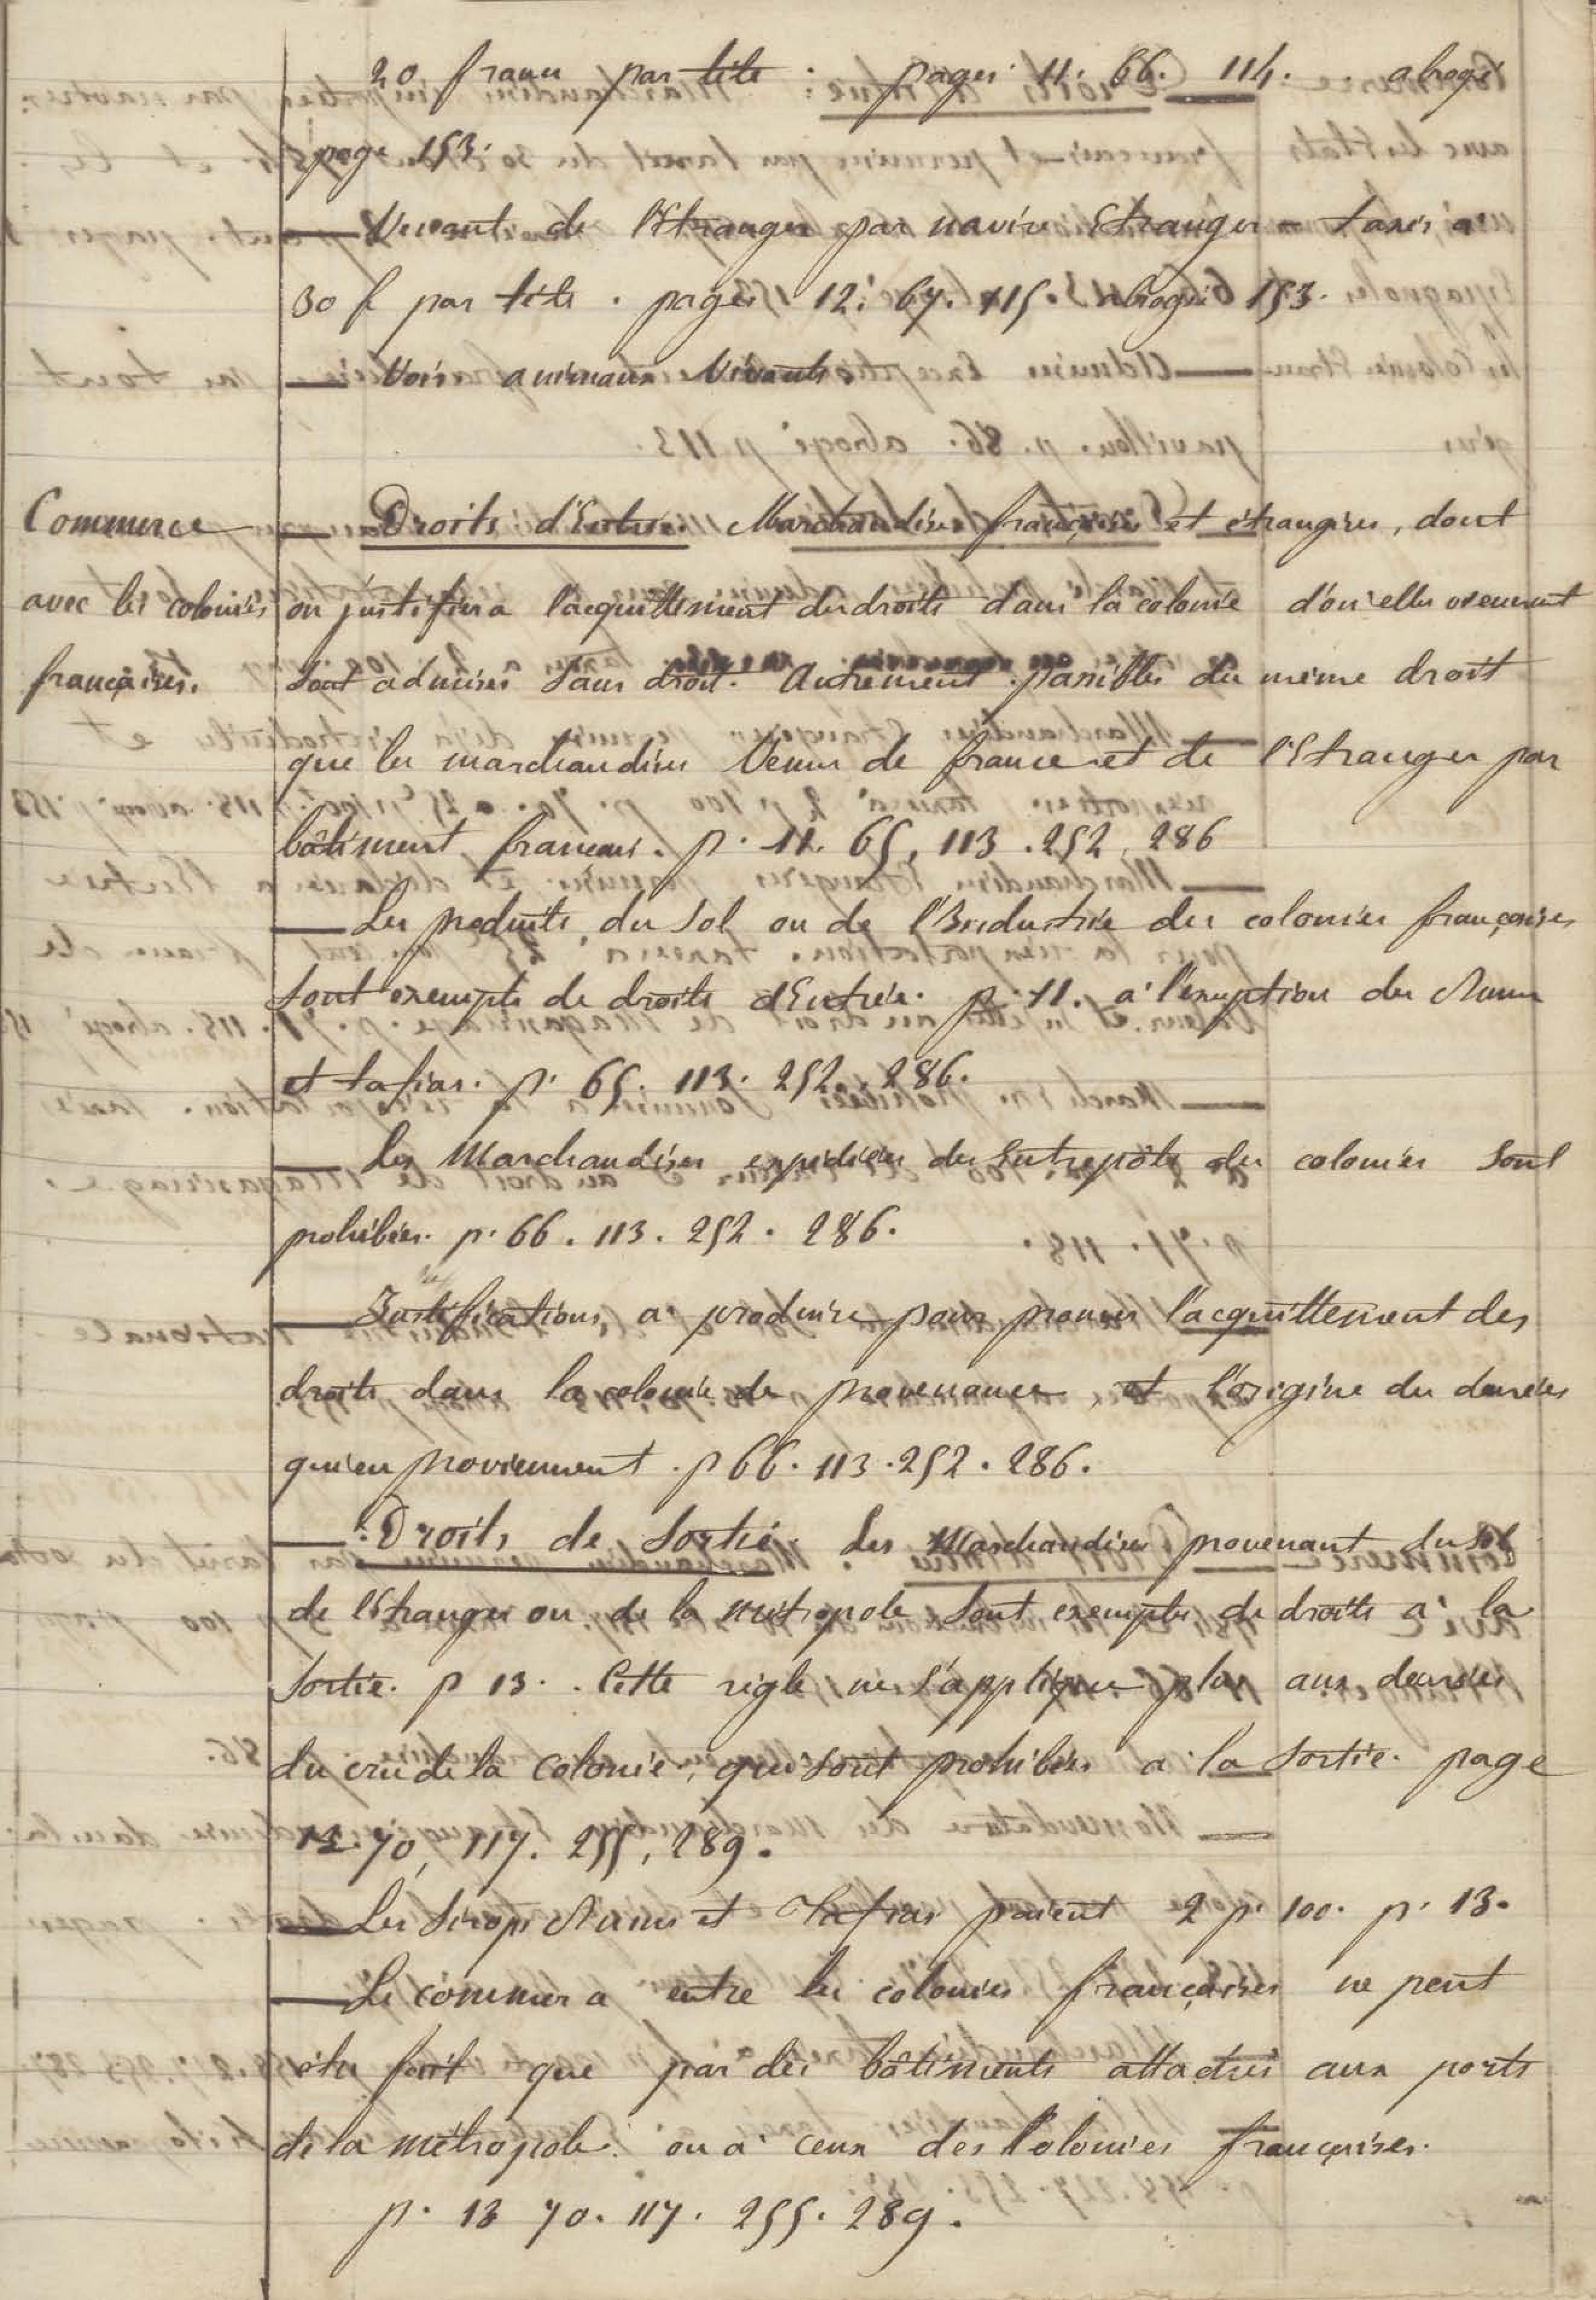 20 francs par tête : pages 11. 66. 114. abrogé
page 153.
— Venant de l'Etranger par navire Etranger – taxés à
30 f par tête. pages 12. 67. 115. abrogé 153.
— Voir animaux Vivants.
Commerce
avec les colonies
françaises.
— Droits d'Entrée. Marchandises françaises et étrangères, dont
on justifiera l'acquittement des droits dans la colonie d'où elles viennent
sont admises sans droit. Autrement passibles du même droit
que les marchandises Venues de france et de l'Etranger par
bâtiment français. p. 11. 65, 113. 252, 286
— Les produits du Sol ou de l'Industrie des colonies françaises
sont exempts de droits d'Entrée. p. 11. à l'exception des Rums
et tafias. p. 65. 113. 252. 286.
— Les Marchandises expédiées des Entrepôts des colonies sont
prohibées. p. 66. 113. 252. 286.
— Justifications à produire pour prouver l'acquittement des
droits dans la colonie de provenance, et l'origine des denrées
qui en proviennent. p 66. 113. 252. 286.
— Droits de Sortie. Les Marchandises provenant du sol
de l'Etranger ou de la métropole sont exemptes de droits à la
sortie. p 13. . Cette règle ne s'applique plus aux denrées
du crû de la colonie, qui sont prohibées à la sortie. page
13. 70, 117. 255, 289.
— Les Sirops Rums et Tafias paient 2 p. 100. p. 13.
— Le commerce entre les colonies françaises ne peut
être fait que par des bâtiments attachés aux ports
de la métropole ou à ceux des Colonies françaises.
p. 13 70. 117. 255. 289.